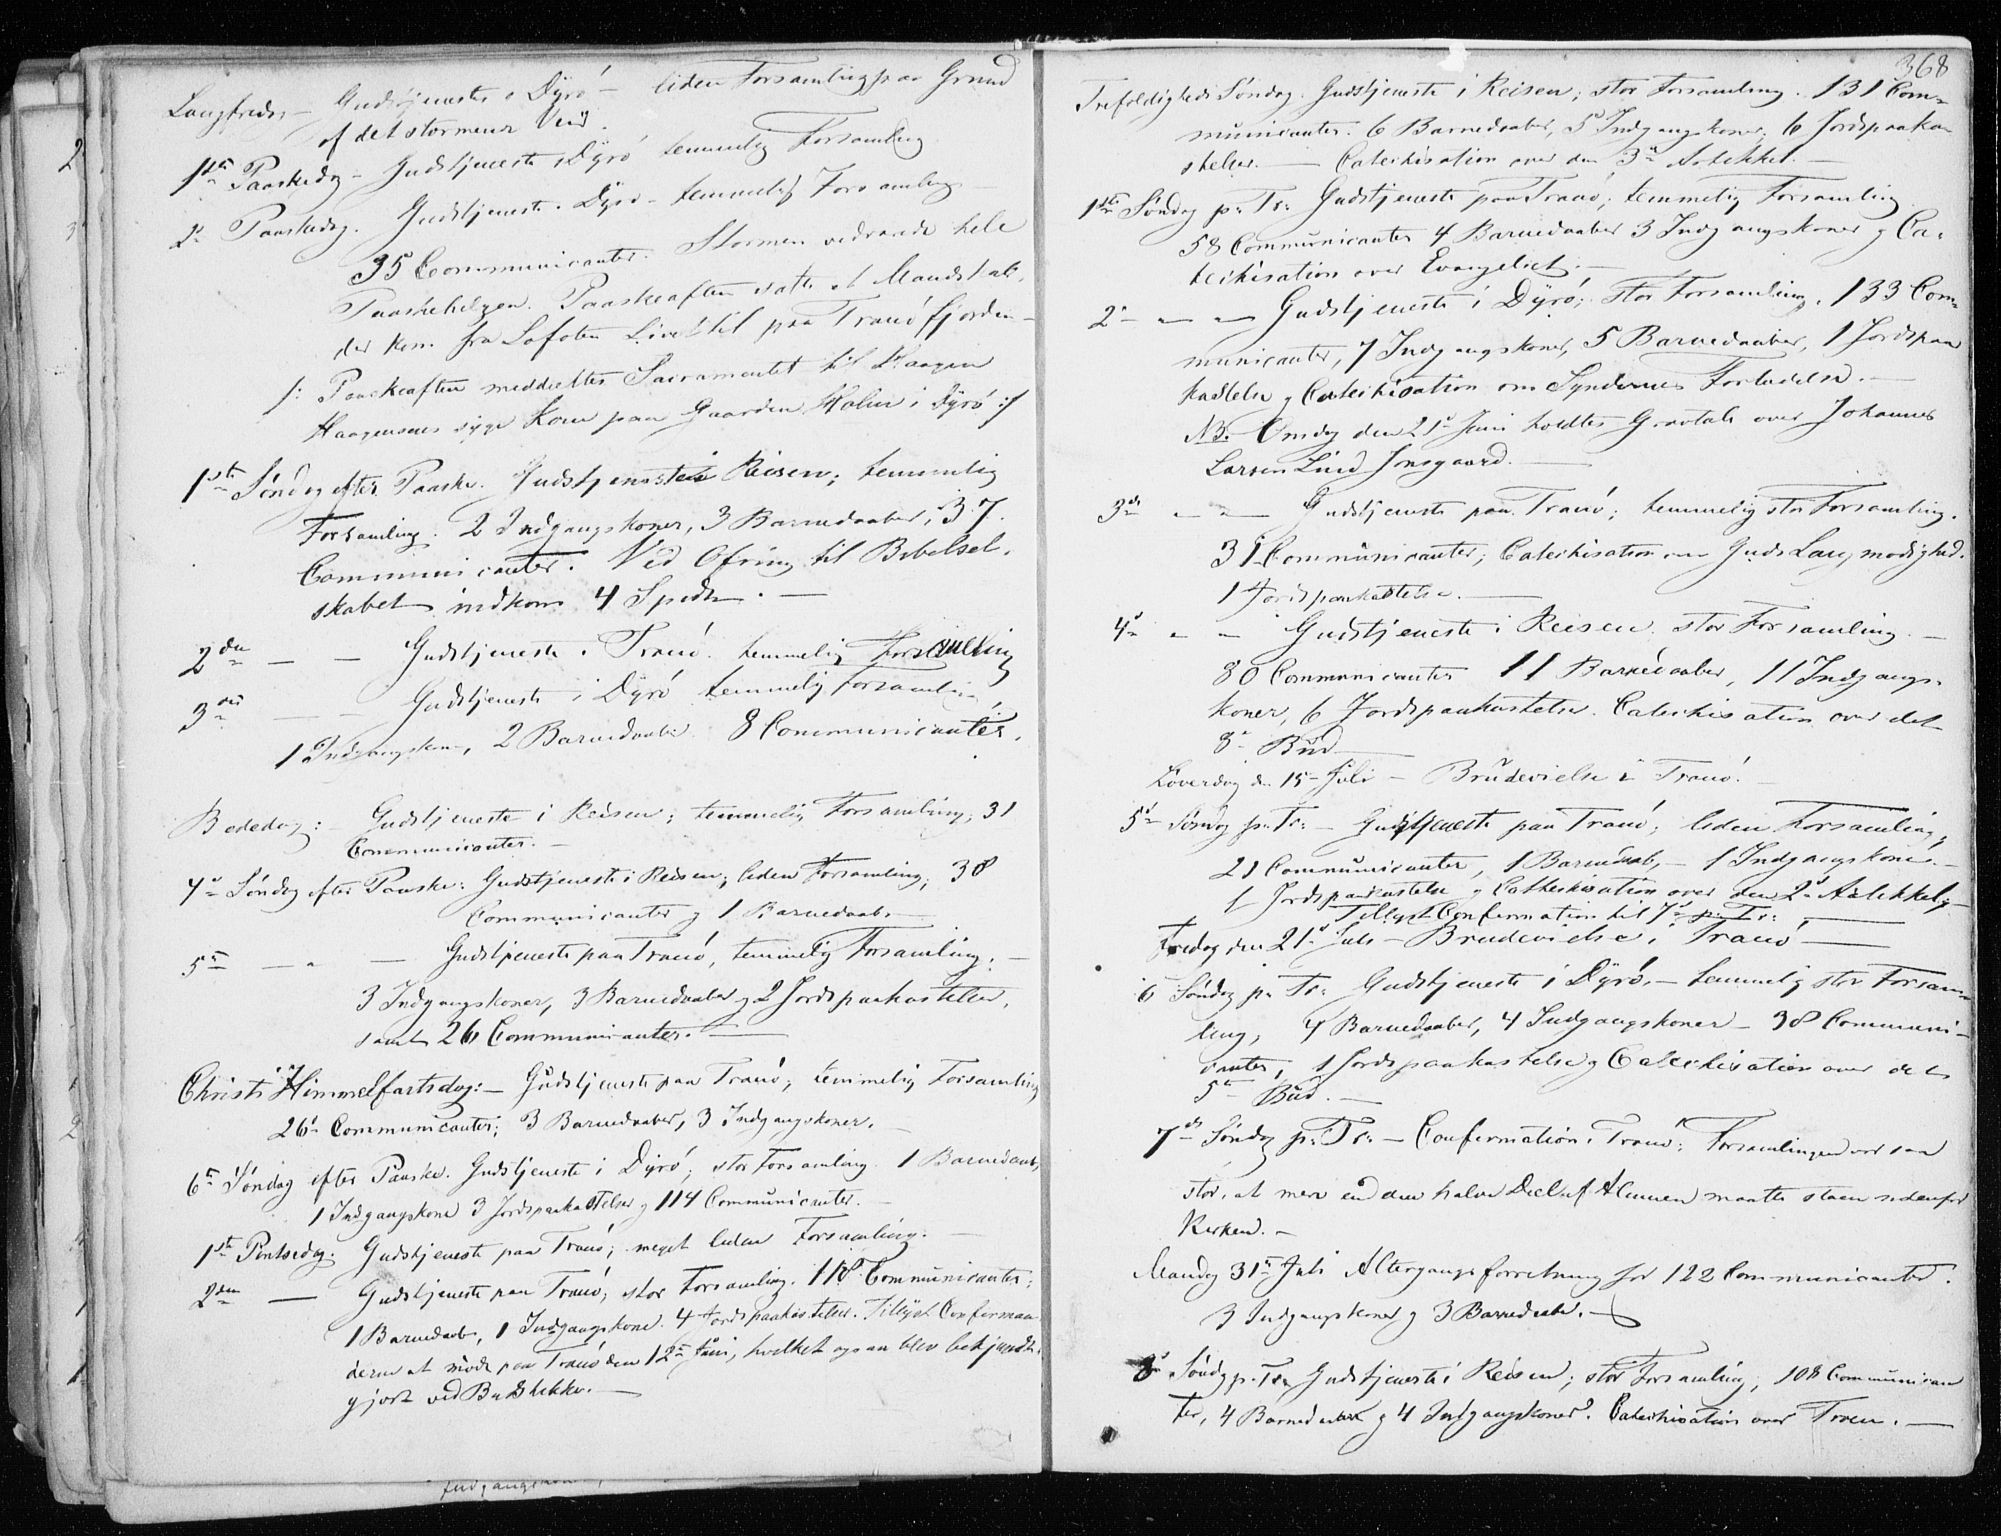 Langfredag - Gudstjeneste i Dyrö - liden Forsamling paa Grund
af det stormene Veir.
1ste Paaskedag - Gudstjeneste i Dyrö temmelig Forsamling.
2n Paaskedag. Gudstjeneste i Dyrö - temmelig Forsamling
35 Communicanter. Stormen vedvarede hele
Paaskehelgen. Paaskeaften satte et Mandskab,
der kom fra Lofoten Livet til paa Tranöfjorden -
/: Paaskeaften meddeeltes Sacramentet til
Haagensens syge Kone paa Gaarden Holm i Dyrö :/
1ste Söndag efter Paaske. Gudstjeneste i Reisen; temmelig
Forsamling. 2 Indgangskoner, 3 Barnedaaber, 37
Communicanter. Ved Ofring til Bibelsel-
skabet indkom 4 Spdlr. -
2den — — Gudstjeneste i Tranö. temmelig Forsamling
3die — — Gudstjeneste i Dyrö temmelig Forsamling
1 Indgangskone, 2 Barnedaaber 8 Communicanter.
Bededag: - Gudstjeneste i Reisen; temmelig Forsamling, 31
Communicanter. -
4de Söndag efter Paaske: Gudstjeneste i Reisen; liden Forsamling, 38
Communicanter og 1 Barnedaab. -
5te — " — Gudstjeneste paa Tranö, temmelig Forsamling. -
3 Indgangskoner, 3 Barnedaaber og 2 Jordspaakastelser,
samt 26 Communicanter. —
Christi Himmelfartsdag: - Gudstjeneste paa Tranö, temmelig Forsamling
26 Communicanter; 3 Barnedaaber, 3 Indgangskoner. -
6te Söndag efter Paaske. Gudstjeneste i Dyrö; stor Forsamling. 1 Barnedaab,
1 Indgangskone 3 Jordspaakastelser og 114 Communicanter. -
1ste Pintsedag. Gudstjeneste paa Tranö; meget liden Forsamling. -
2den — Gudstjeneste paa Tranö, stor Forsamling. 118 Communicanter;
1 Barnedaab, 1 Indgangskone. 4 Jordspaakastelser. Tillyst Confirman-
derne at möde paa Tranö den 12te Juni, hvilket ogsaa blev bekjendt-
gjort ved Budstikke. —
368
Trefoldigheds Söndag. Gudstjeneste i Reisen; stor Forsamling. 131 Com-
municanter. 6 Barnedaaber, 5 Indgangskoner, 6 Jordspaaka-
stelser. — Catechisation over den 3die Artikkel. -
1ste Söndag p. Tr: Gudstjeneste paa Tranö; temmelig Forsamling
58 Communicanter 4 Barnedaaber 3 Indgangskoner og Ca-
techisation over Evangeliet. -
2n — — Gudstjeneste i Dyrö; stor Forsamling. 133 Com-
municanter, 7 Indgangskoner, 5 Barnedaaber, 1 Jordspaa
kastelse og Catechisation om Syndernes Forladelse. -
NB. Onsdag den 21de Juni holdtes Gravtale over Johannes
Larsen Lind Jonsgaard. —
3die — — Gudstjeneste paa Tranö; temmelig stor Forsamling.
31 Communicanter; Catechisation om Guds Langmodighed.
1 Jordspaakastelse. —
4de — — Gudstjeneste i Reisen. stor Forsamling. -
80 Communicanter 11 Barnedaaber, 11 Indgangs-
koner, 6 Jordspaakastelser. Catechisation over det
8de Bud —
Löverdag d. 15de Juli - Brudevielse i Tranö. -
5te Söndag p. Tr: - Gudstjeneste paa Tranö; liden Forsamling,
21 Communicanter, 1 Barnedaab, - 1 Indgangskone. -
1 Jordspaakastelse og Catechisation over den 2den Artikkel, -
Tillyst Confirmation til 7de p. Tr: —
Fredag den 21de Juli - Brudevielse i Tranö —
6 Söndag p. Tr: Gudstjeneste i Dyrö. - temmelig stor Forsam-
ling, 4 Barnedaaber, 4 Indgangskoner - 38 Communi-
canter, 1 Jordspaakastelse og Catechisation over det
5te Bud. -
7de Söndag p. Tr: - Confirmation i Tranö: Forsamlingen var saa
stor, at mere end den halve Deel af Almuen maatte staae udenfor
Kirken. -
Mandag 31te Juli Altergangsforretning for 122 Communicanter.
3 Indgangskoner og 3 Barnedaaber. —
8de Söndag p. Tr: Gudstjeneste i Reisen; stor Forsamling, 108 Communican
ter, 4 Barnedaaber og 4 Indgangskoner. Catechisation over Troen. —